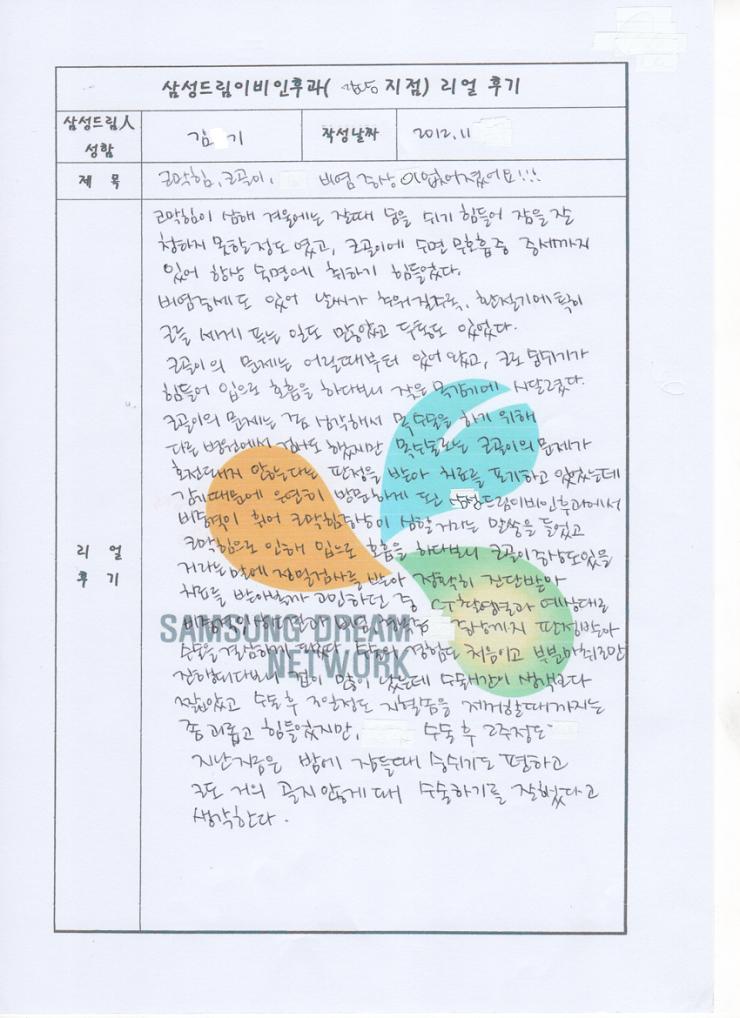 삼성드림이비인후과( 강남 지점) 리얼 후기
삼성드림人
성함
김 기
작성날짜
2012.11
제 목
코막힘, 코골이, 비염증상이 없어졌어요!!!
리 얼
후 기
코막힘이 심해 겨울에는 잘때 숨을 쉬기 힘들어 잠을 잘
청하지 못할정도 였고, 코골이에 수면 무호흡증 증세까지
있어 항상 숙면에 취하기 힘들었다.
비염증세도 있어 날씨가 추워질수록, 환절기에 특히
코를 세게 푸는 일도 많았고 두통도 있었다.
코골이의 문제는 어릴때부터 있어 왔고, 코로 숨쉬기가
힘들어 입으로 호흡을 하다보니 잦은 목감기에 시달렸다.
코골이의 문제는 생각해서 목수술을 하기 위해
다른 병원에서 검사도 했지만 목수술로는 코골이의 문제가
호전되지 않는다는 판정을 받아 치료를 포기하고 있었는데
감기때문에 우연히 방문하게 된 삼성드림이비인후과에서
비중격이 휘어 코막힘증상이 심할거라는 말씀을 들었고
코막힘으로 인해 입으로 호흡을 하다보니 코골이증상도있을
거라는 말에 정밀검사를 받아 정확히 진단받아
치료를 받아볼까 고민하던 중 CT촬영결과 예상대로
증상까지 판정받아
수술을 결심하게 되었다. 수술의 경험도 처음이고 부분마취로만
진행된다보니 겁이 많이 났는데 수술시간이 생각보다
짧았고 수술 후 3일정도 지혈솜을 제거할때까지는
좀 괴롭고 힘들었지만, 수술 후 2주정도
지난지금은 밤에 잠들때 숨쉬기도 편하고
코도 거의 골지않게 돼 수술하기를 잘했다고
생각한다.
SAMSUNG DREAM
NETWORK